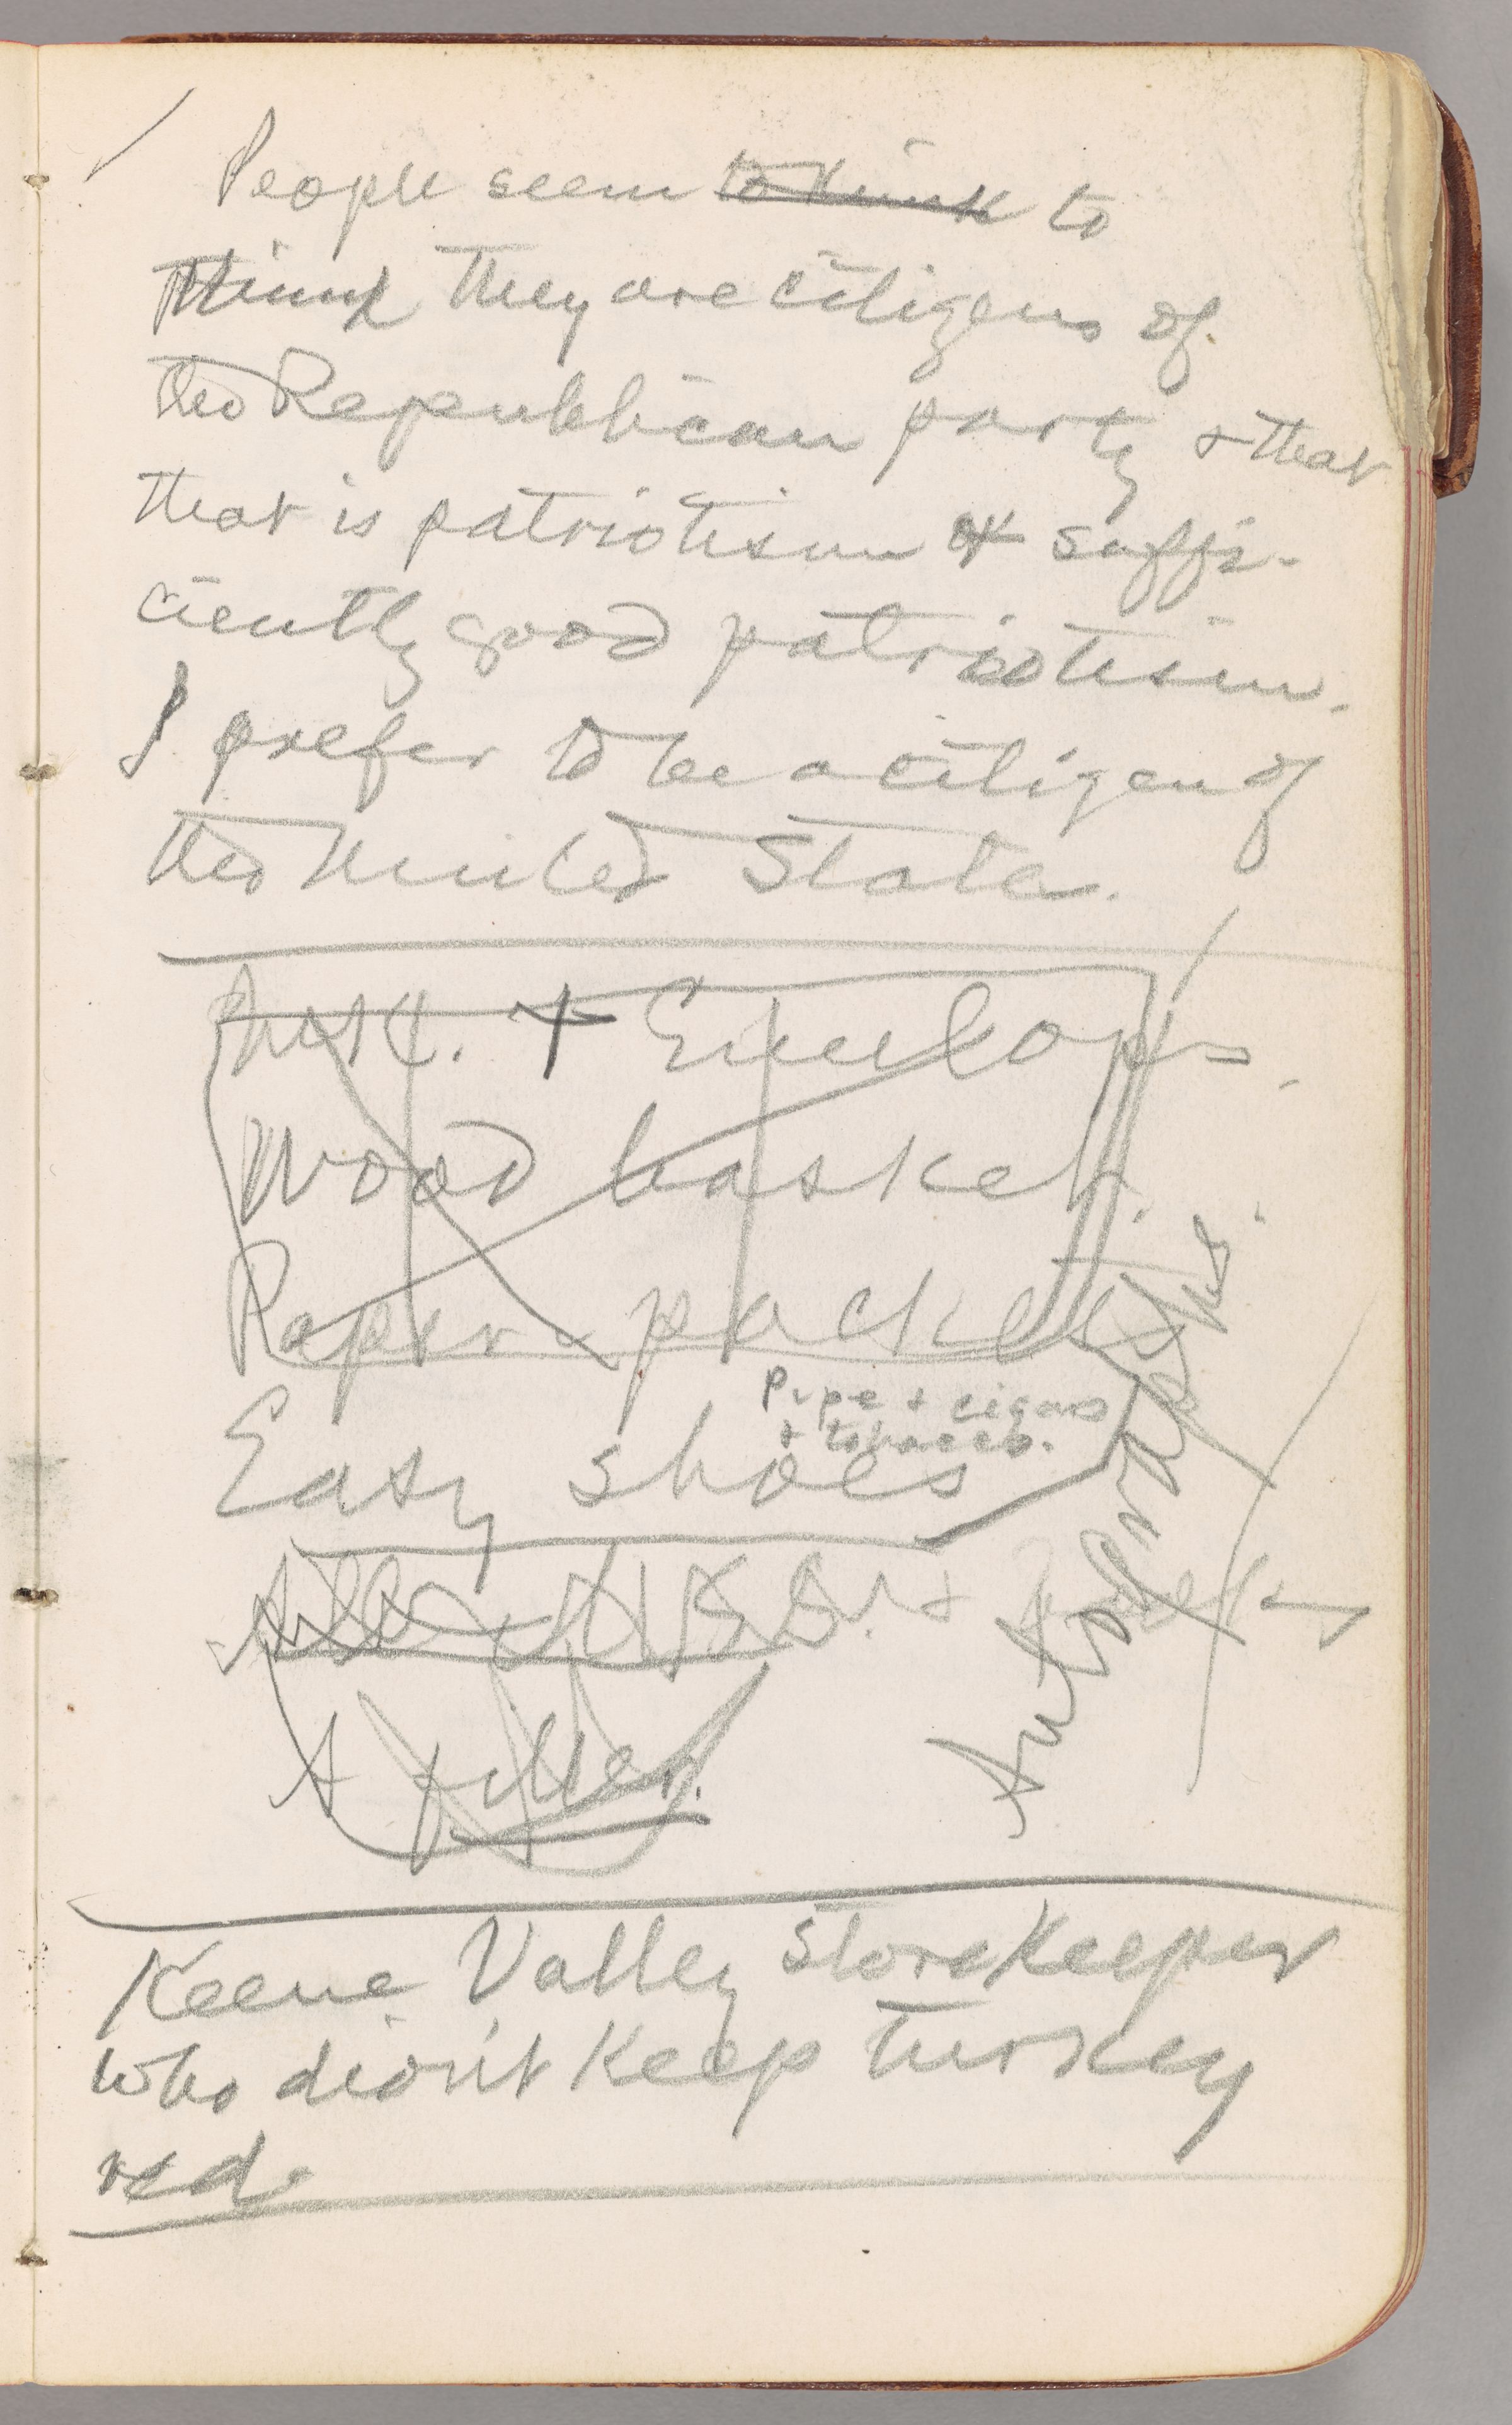 People seem to think to
think they are citizens of
the Republican party & that
that is patriotism & suffi-
ciently good patriotism.
I prefer to be a citizen of
the United States.
Ink. + Envelops.
Wood basket.
Paper-packets
Pipe + cigars
+ tobacco.
Easy shoes
A filler.
Autographs.
Keene Valley storekeeper
who didn't keep turkey
red.